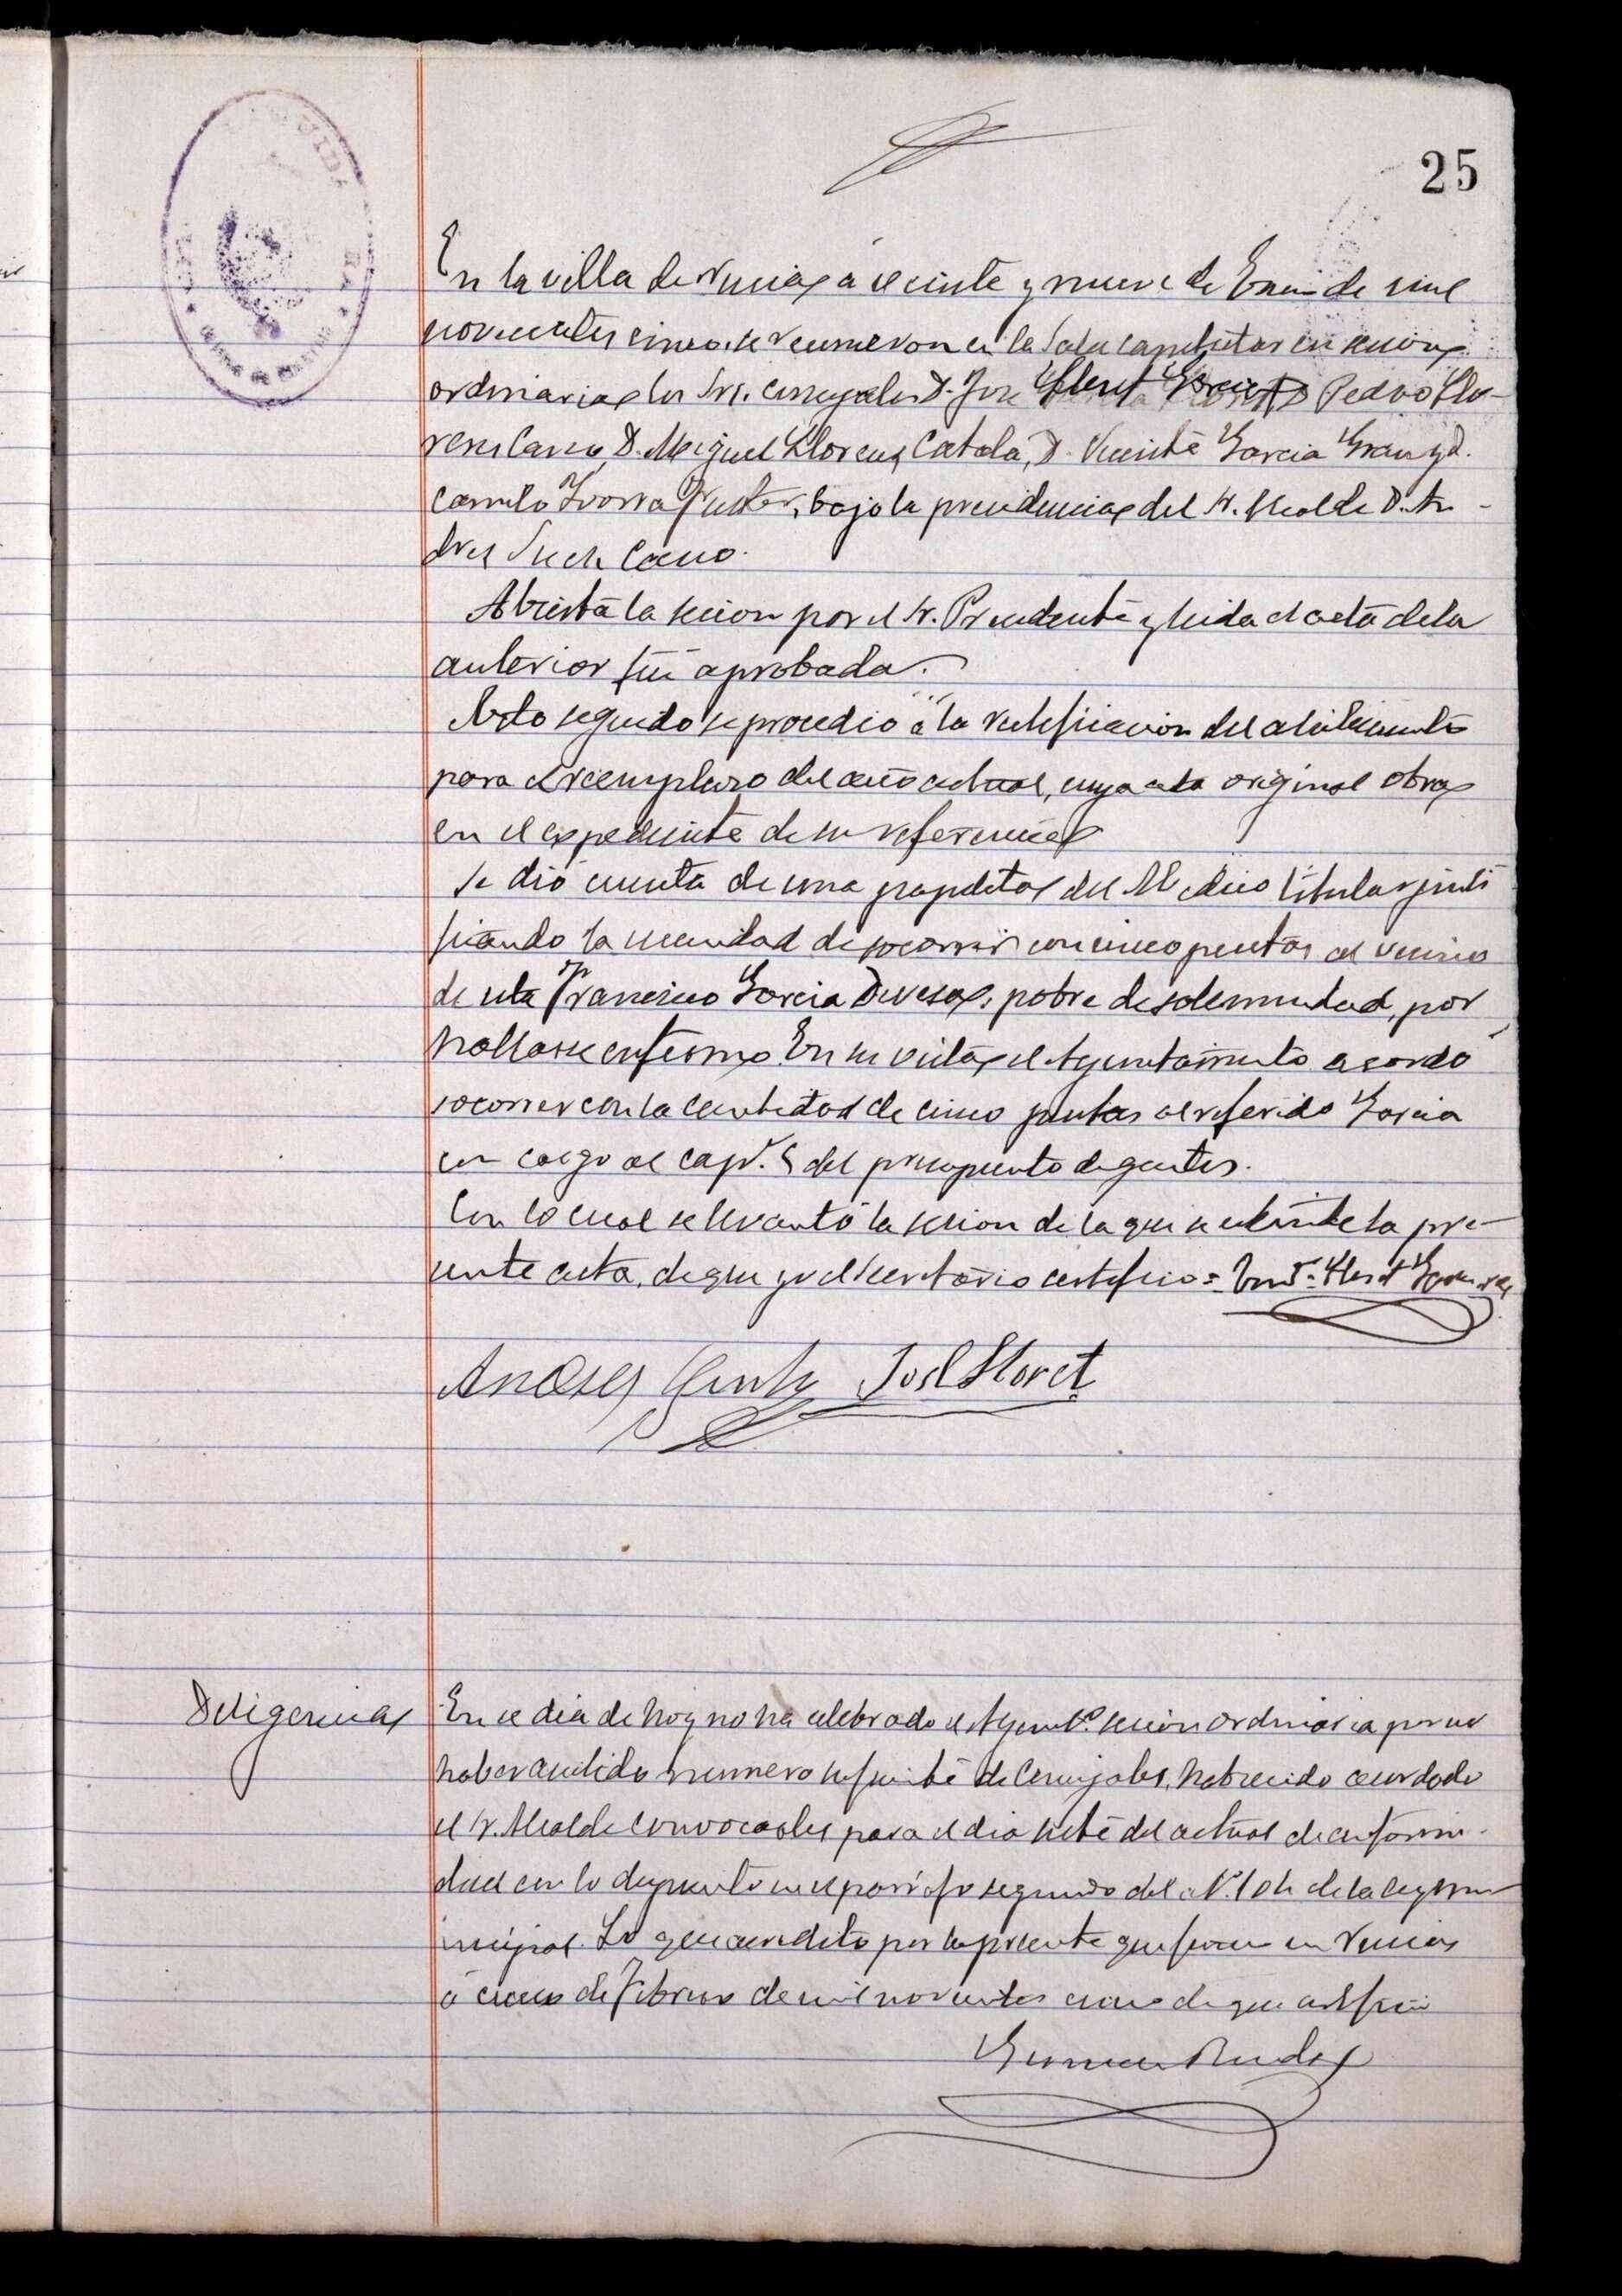 25
En la villa de Nucia á veinte y nueve de Enero de mil
novecientos cinco, se reunieron en la Sala capitular en sesion
ordinaria los Srs. concejales D. José Lloret Garcia D Pedro Llo-
rens Cano, D. Miguel Llorens Catalá, D. Vicente Garcia Gran y D.
Camilo Ivorra Fuster, bajo la presidencia del Sr. Alcalde D. An-
dres Such Cano.
Abierta la sesion por el Sr. Presidente y leida el acta de la
anterior fué aprobada.
Acto seguido se procedió á la rectificacion del alistamiento
para el reemplazo del año actual, cuya acta original obra
en el expediente de su referencia
Se dió cuenta de una papeleta del Médico titular justi
ficando la necesidad de socorrer con cinco pesetas al vecino
de esta Francisco Garcia Devesa, pobre de solemnidad, por
hallarse enfermo. En su vista el Ayuntamiento acordó
socorrer con la cantidad de cinco pesetas al referido Garcia
con cargo al cap. 5 del presupuesto de gastos.
Con lo cual se levantó la sesion de la que se estiende la pre-
sente acta, de que yo el Secretario certifico = Lloret Garcia vale
Andres Such José Lloret
Diligencia
En el dia de hoy no ha celebrado el Ayunt.º sesion ordinaria por no
haber asistido número suficiente de Concejales, habiendo acordado
el Sr. Alcalde convocarles para el dia siete del actual de conformi-
dad con lo dispuesto en el parrafo segundo del art. 104 de la ley mu
nicipal. Lo que acredito por la presente que firmo en Nucia
á cinco de Febrero de mil novecientos cinco de que certifico